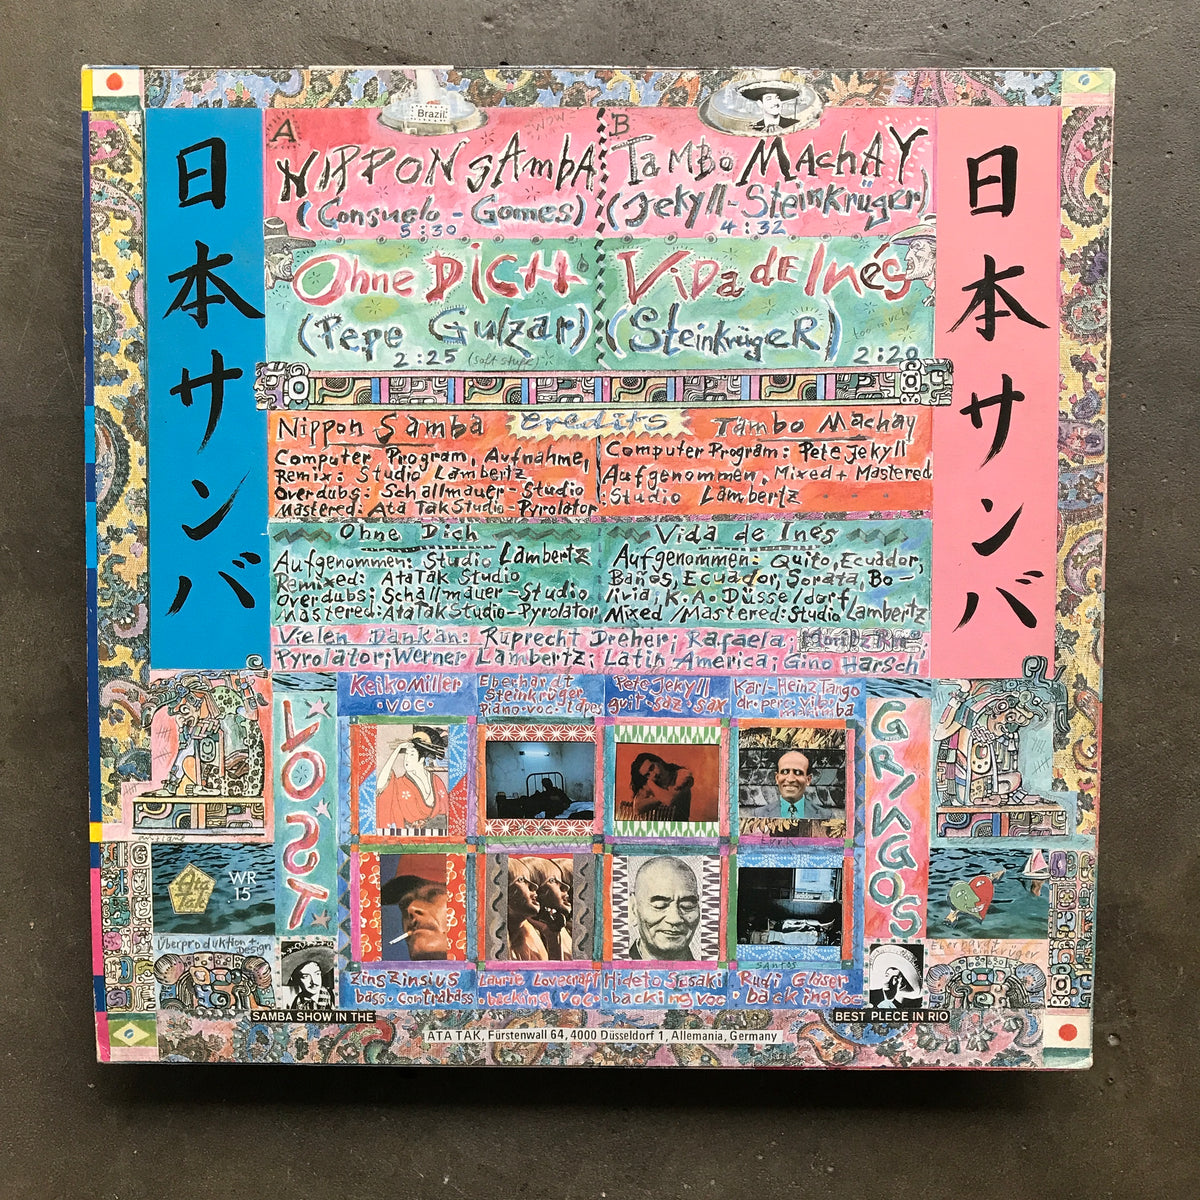 日本サンバ
日本サンバ
Brazil
A
NIPPON SAmbA
(Consuelo - Gomes)
5:30
Ohne DICH
(Pepe Gulzar)
2:25
B
TaMBo MAchAY
(Jekyll-Steinkrüger)
4:32
ViDa dE Inés
(SteinkrügeR)
too much
2:20
Credits
Nippon Samba
Computer Program, Aufnahme,
Remix: Studio Lambertz
Overdubs: Schallmauer-Studio
Mastered: Ata Tak Studio-Pyrolator
Tambo Machay
Computer Program: Pete Jekyll
Aufgenommen, Mixed + Mastered
: Studio Lambertz
Ohne Dich
Aufgenommen: Studio Lambertz
Remixed: AtaTak Studio
Overdubs: Schallmauer-Studio
Mastered: AtaTak Studio-Pyrolator
Vida de Inés
Aufgenommen: Quito, Ecuador,
Baños, Ecuador, Sorata, Bo-
livia, K.A. Düsseldorf
Mixed/Mastered: Studio Lambertz
Vielen Dankan: Ruprecht Dreher; Rafaela;
Pyrolator; Werner Lambertz; Latin America; Gino Harsch
LOST
GRINGOS
Keiko Miller
·voc·
Eberhardt
Steinkrüger
piano·voc·tapes
Pete Jekyll
guit·saz·sax
Karl-Heinz Tango
dr·perc·vib·
marimba
Ata
Tak
WR
15
Überproduktion +
Design
Eberhardt
Zinszinsius
bass·contrabass
Laurie Lovecraft
·backing voc·
Hideto Sasaki
·backing voc
SANTOS
Rudi Gläser
·backing voc·
SAMBA SHOW IN THE
BEST PLECE IN RIO
ATA TAK, Fürstenwall 64, 4000 Düsseldorf 1, Allemania, Germany